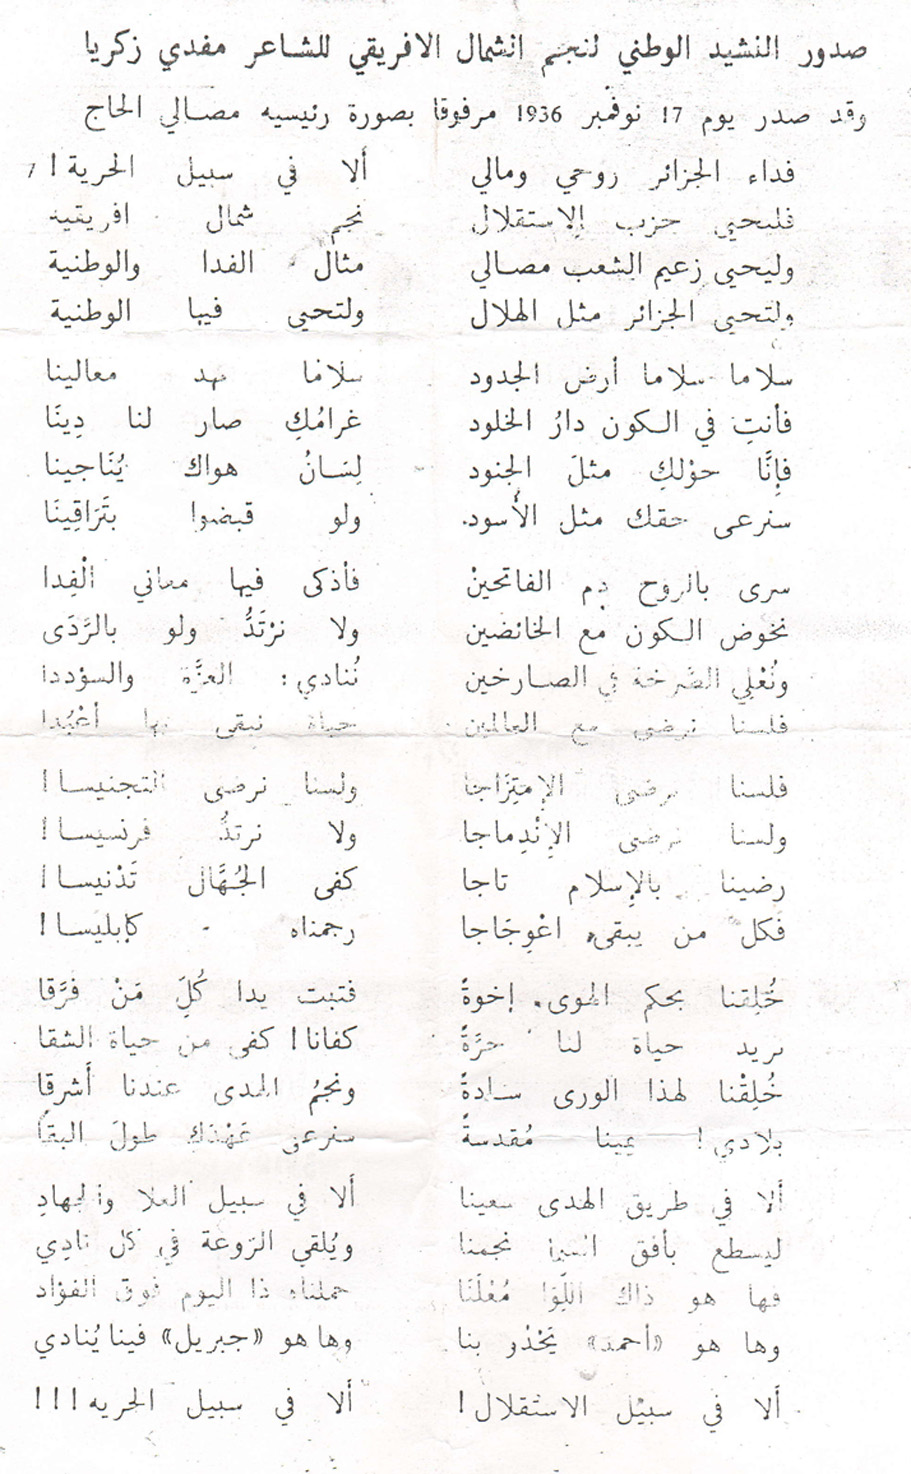 صدور النشيد الوطني لنجم الشمال الافريقي للشاعر مفدي زكريا
وقد صدر يوم 17 نوفمبر 1936 مرفوقا بصورة رئيسيه مصالي الحاج
فداء الجزائر روحي ومالي ألا في سبيل الحرية !
فليحيى حزب الاستقلال نجم شمال افريقية
وليحيى زعيم الشعب مصالي مثال الفدا والوطنية
ولتحيى الجزائر مثل الهلال ولتحيى فيها الوطنية
سلاما سلاما أرض الجدود سلاما مهد معالينا
فأنتِ في الكون دارُ الخلود غرامُكِ صار لنا دِينَا
فإنَّا حوْلكِ مثلَ الجنود لِسَانُ هواك يُنَاجينا
سنرعى حقك مثل الأسود ولو قبضوا بتَرَاقِينَا
سرى بالروح دم الفاتحينْ فأذكى فيها معاني الْفِدا
نخوض الكون مع الخائضين ولا نرْتَدُّ ولو بالرَّدَى
ونُعْلِي الصَّرخة في الصارخين نُنادي : العزَّة والسؤددا
فلسنا نرضى مع العالمين حياة نبقى بها أعْبُدا
فلسنا نرضى الإمتِزَاجا ولسنا نرضى التجنيسا !
ولسنا نرضى الإنْدِماجا ولا نرتدُّ فرنسيسا !
رضينا بالإسلام تاجا كفى الجُهَّال تَدْنيسا !
فكل من يبقى اعْوِجَاجا رجمناه كإبليسا !
خُلِقنا بحكم الهوى إخوةً فتبت يدا كُلِّ مَنْ فرَّقا
نريد حياة لنا حرَّةً كفانا ! كفى من حياة الشقا
خُلِقْنا لهذا الورى سادةً ونجمُ الهدى عندنا أَشرقا
بلادي ! يمينا مُقدسةً سنرعى عَهْدَكِ طولَ البقَا
ألا في طريق الهدى سعينا ألا في سبيل العلا والجهادِ
ليسطع بأفق السَّما نجمنا ويُلقي الرَّوعة في كل نادِي
فها هو ذاك اللِّوَا مُعْلَنَا حملناه ذا اليوم فوق الفؤاد
وها هو «أحمد» يَحْدُو بنا وها هو «جبريل» فينا يُنادي
ألا في سبيْل الاستقلال ! ألا في سبيل الحريه ! ! !